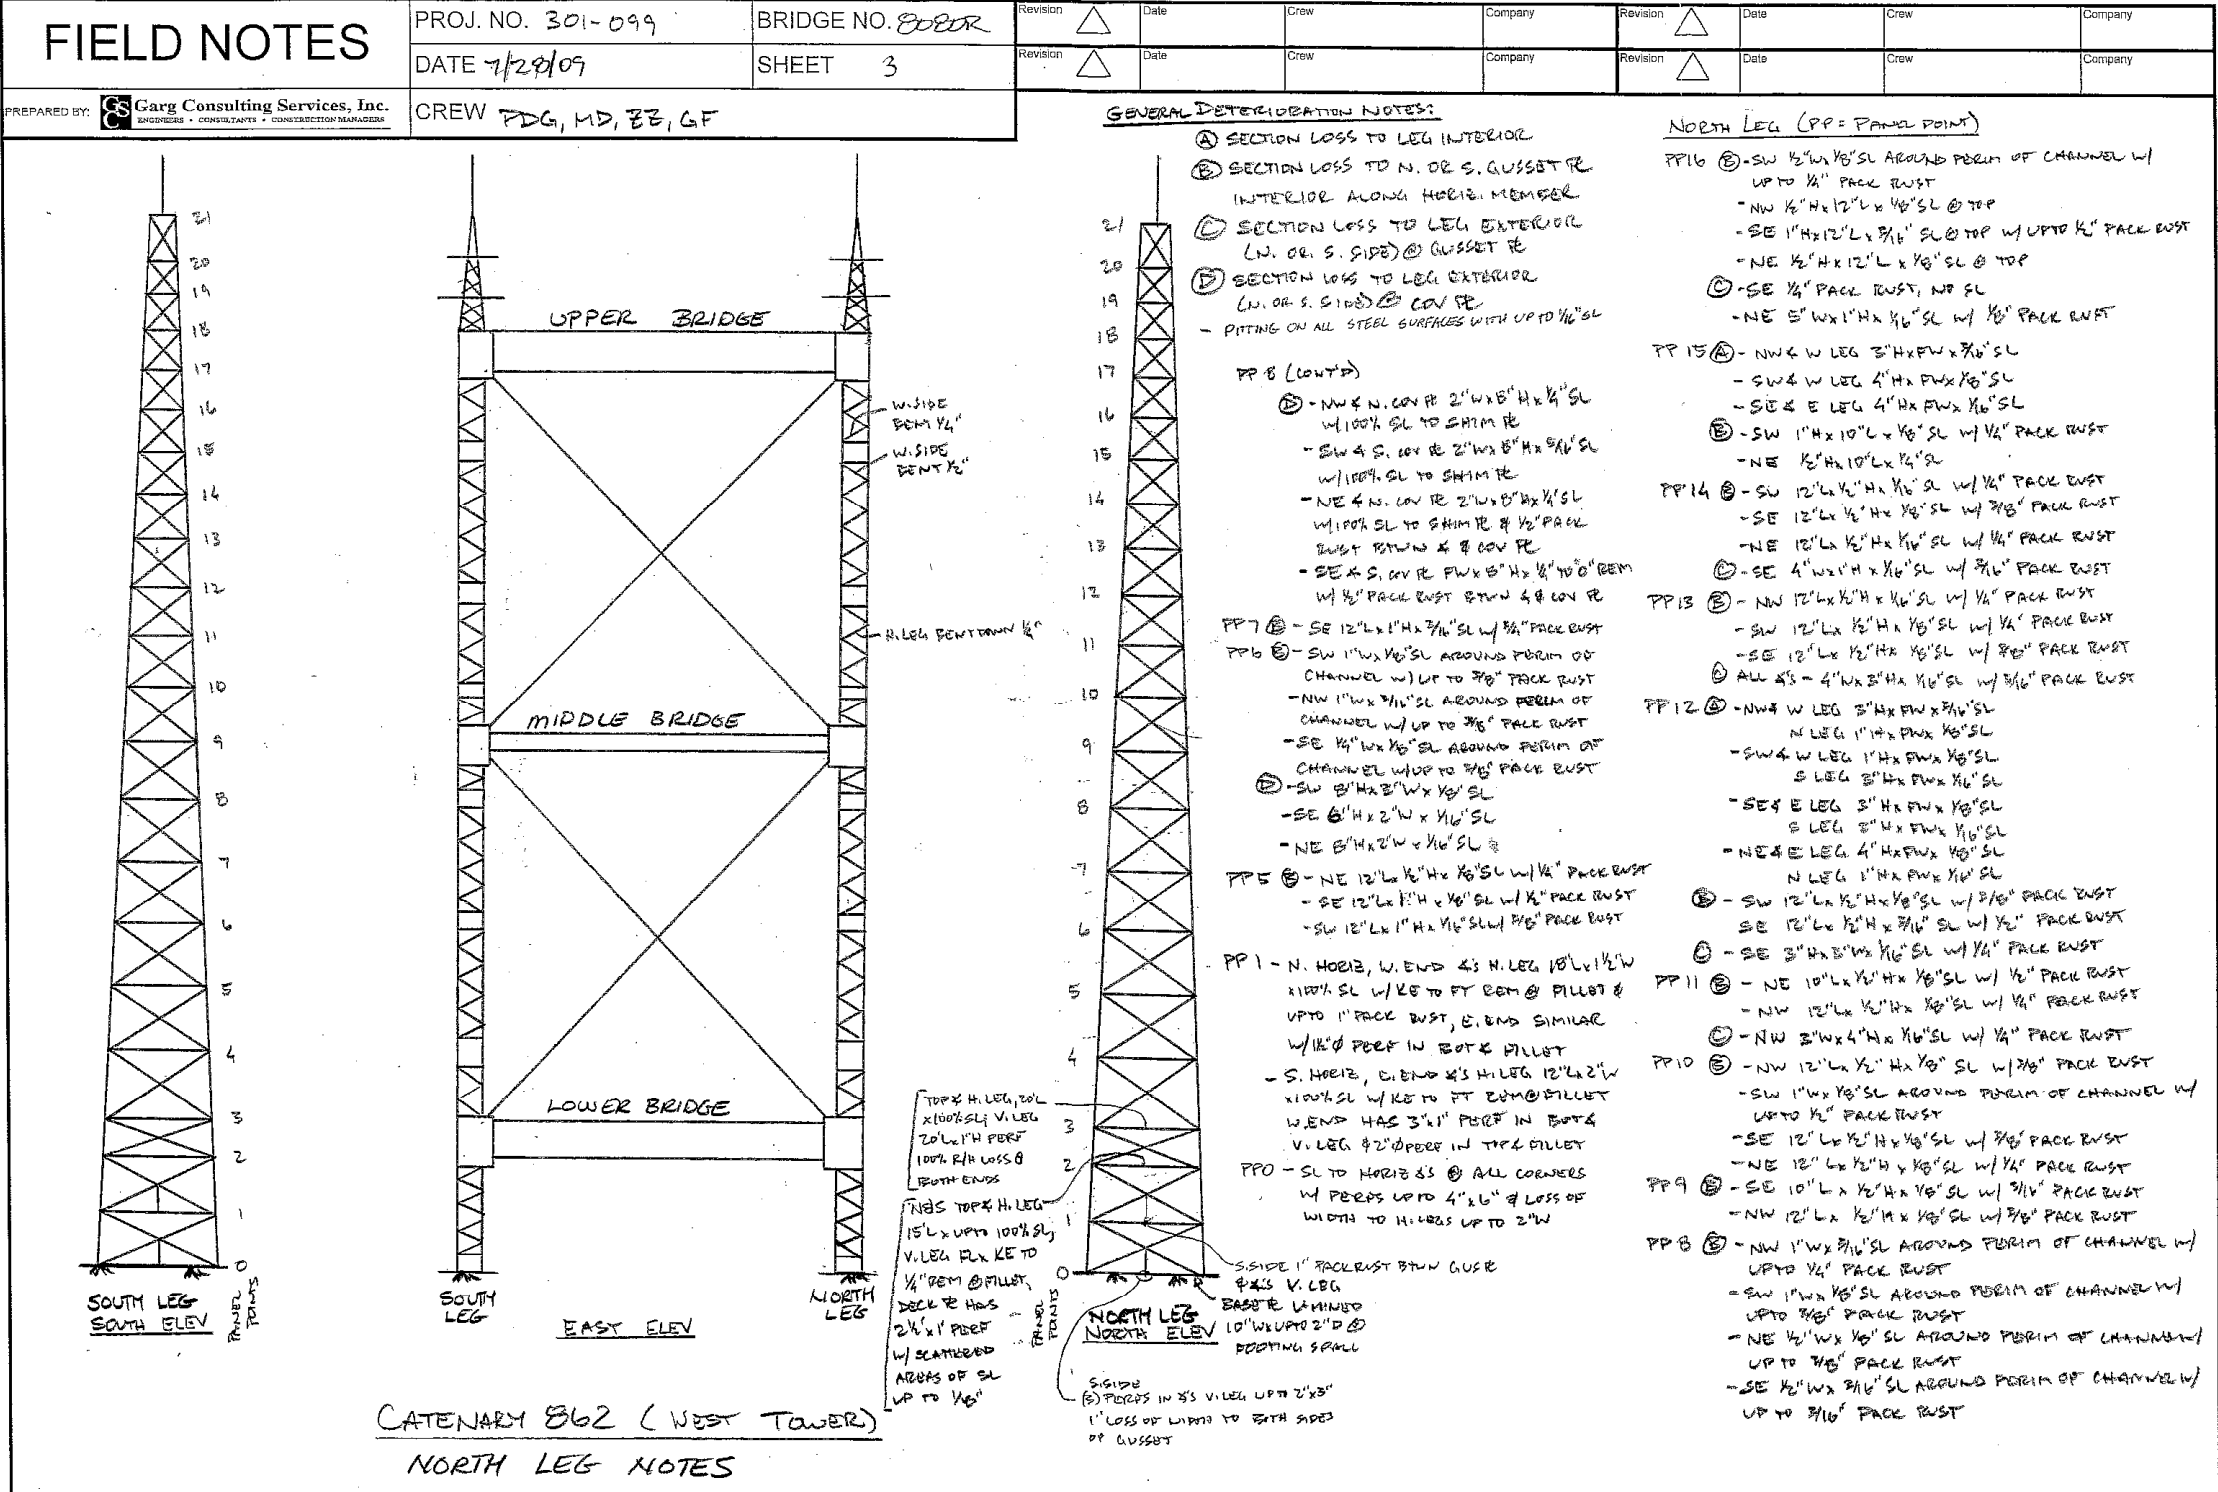 FIELD NOTES
PROJ. NO. 301-099
BRIDGE NO. 8080R
DATE 7/28/09
SHEET 3
PREPARED BY: GCS Garg Consulting Services, Inc.
ENGINEERS • CONSULTANTS • CONSTRUCTION MANAGERS
CREW PDG, MD, ZZ, GF
Revision Date Crew Company Revision Date Crew Company
Revision Date Crew Company Revision Date Crew Company
21
20
19
18
17
16
15
14
13
12
11
10
9
8
7
6
5
4
3
2
1
0
PANEL POINTS
SOUTH LEG
SOUTH ELEV
UPPER BRIDGE
MIDDLE BRIDGE
LOWER BRIDGE
W. SIDE
BENT 1/4"
W. SIDE
BENT 1/2"
H. LEG BENT DOWN
SOUTH
LEG
NORTH
LEG
EAST ELEV
TOP ∡ H. LEG, 20'L
x100% SL; V. LEG
20'L x 1"H PERF
100% R/H LOSS @
BOTH ENDS
N&S TOP ∡ H. LEG
15'L x UPTO 100% SL,
V. LEG FL x KE TO
1/4" REM @ FILLET,
DECK PL HAS
2 1/2' x 1' PERF
W/ SCATTERED
AREAS OF SL
UP TO 1/8"
21
20
19
18
17
16
15
14
13
12
11
10
9
8
7
6
5
4
3
2
1
0
PANEL POINTS
NORTH LEG
NORTH ELEV
S. SIDE 1" PACK RUST BTWN GUS PL
& ∡'S V. LEG
BASE PL LAMINED
10"W x UPTO 2"D @
FOOTING SPALL
S. SIDE
PERFS IN ∡'S V. LEG UPTO 2"x3"
1" LOSS OF WIDTH TO BOTH SIDES
OF GUSSET
CATENARY 862 (WEST TOWER)
NORTH LEG NOTES
GENERAL DETERIORATION NOTES:
Ⓐ SECTION LOSS TO LEG INTERIOR
Ⓑ SECTION LOSS TO N. OR S. GUSSET PL
INTERIOR ALONG HORIZ. MEMBER
Ⓒ SECTION LOSS TO LEG EXTERIOR
(N. OR. S. SIDE) @ GUSSET PL
Ⓓ SECTION LOSS TO LEG EXTERIOR
(N. OR S. SIDE) @ COV PL
- PITTING ON ALL STEEL SURFACES WITH UP TO 1/16" SL
PP 8 (CONT'D)
Ⓓ - NW ∡ N. COV PL 2"W x 8"H x 1/4" SL
W/100% SL TO SHIM PL
- SW ∡ S. COV PL 2"W x 8"H x 5/16" SL
W/100% SL TO SHIM PL
- NE ∡ N. COV PL 2"W x 8"H x 1/4" SL
W/100% SL TO SHIM PL & 1/2" PACK
RUST BTWN ∡ & COV PL
- SE ∡ S. COV PL FW x 8"H x 1/4" TO 0" REM
W/ 1/2" PACK RUST BTWN ∡ & COV PL
PP 7 Ⓑ - SE 12"L x 1"H x 3/16" SL W/ 3/4" PACK RUST
PP 6 Ⓑ - SW 1"W x 1/8" SL AROUND PERIM OF
CHANNEL W/ UP TO 3/8" PACK RUST
- NW 1"W x 3/16" SL AROUND PERIM OF
CHANNEL W/ UP TO 3/8" PACK RUST
- SE 1/4"W x 1/8" SL AROUND PERIM OF
CHANNEL W/ UP TO 3/8" PACK RUST
Ⓓ - SW 8"H x 2"W x 1/8" SL
- SE 6"H x 2"W x 1/16" SL
- NE 8"H x 2"W x 1/16" SL
PP 5 Ⓑ - NE 12"L x 1/2"H x 1/8" SL W/ 1/4" PACK RUST
- SE 12"L x 1"H x 1/8" SL W/ 1/2" PACK RUST
- SW 12"L x 1"H x 1/16" SL W/ 3/8" PACK RUST
PP 1 - N. HORIZ, W. END ∡'S H. LEG 18"L x 1 1/2"W
x100% SL W/ KE TO FT REM @ FILLET &
UPTO 1" PACK RUST, E. END SIMILAR
W/ 1 1/2"Ø PERF IN BOT ∡ FILLET
- S. HORIZ, E. END ∡'S H. LEG 12"L x 2"W
x100% SL W/ KE TO FT REM @ FILLET
W. END HAS 3"x1" PERF IN BOT ∡
V. LEG & 2"Ø PERF IN TOP ∡ FILLET
PP0 - SL TO HORIZ ∡'S @ ALL CORNERS
W/ PERFS UPTO 4"x6" & LOSS OF
WIDTH TO H. LEGS UP TO 2"W
NORTH LEG (PP = PANEL POINT)
PP16 Ⓑ - SW 1/2"W x 1/8" SL AROUND PERIM OF CHANNEL W/
UP TO 1/4" PACK RUST
- NW 1/2"H x 12"L x 1/8" SL @ TOP
- SE 1"H x 12"L x 3/16" SL @ TOP W/ UPTO 1/2" PACK RUST
- NE 1/2"H x 12"L x 1/8" SL @ TOP
Ⓒ - SE 1/4" PACK RUST, NO SL
- NE 5"W x 1"H x 1/16" SL W/ 1/8" PACK RUST
PP 15 Ⓐ - NW ∡ W LEG 3"H x FW x 3/16" SL
- SW ∡ W LEG 4"H x FW x 1/8" SL
- SE ∡ E LEG 4"H x FW x 1/16" SL
Ⓑ - SW 1"H x 10"L x 1/8" SL W/ 1/4" PACK RUST
- NE 1/2"H x 10"L x 1/4" SL
PP 14 Ⓑ - SW 12"L x 1/2"H x 1/16" SL W/ 1/4" PACK RUST
- SE 12"L x 1/2"H x 1/8" SL W/ 3/8" PACK RUST
- NE 12"L x 1/2"H x 1/16" SL W/ 1/4" PACK RUST
Ⓒ - SE 4"W x 1"H x 1/16" SL W/ 3/16" PACK RUST
PP 13 Ⓑ - NW 12"L x 1/2"H x 1/16" SL W/ 1/4" PACK RUST
- SW 12"L x 1/2"H x 1/8" SL W/ 1/4" PACK RUST
- SE 12"L x 1/2"H x 1/8" SL W/ 3/8" PACK RUST
Ⓒ ALL ∡'S - 4"W x 3"H x 1/16" SL W/ 3/16" PACK RUST
PP 12 Ⓐ - NW ∡ W LEG 3"H x FW x 3/16" SL
N LEG 1"H x FW x 1/8" SL
- SW ∡ W LEG 1"H x FW x 1/8" SL
S LEG 3"H x FW x 1/16" SL
- SE ∡ E LEG 3"H x FW x 1/8" SL
S LEG 2"H x FW x 1/16" SL
- NE ∡ E LEG 4"H x FW x 1/8" SL
N LEG 1"H x FW x 1/16" SL
Ⓑ - SW 12"L x 1/2"H x 1/8" SL W/ 3/8" PACK RUST
SE 12"L x 1/2"H x 3/16" SL W/ 1/2" PACK RUST
Ⓒ - SE 3"H x 3"W x 1/16" SL W/ 1/4" PACK RUST
PP 11 Ⓑ - NE 10"L x 1/2"H x 1/8" SL W/ 1/2" PACK RUST
- NW 12"L x 1/2"H x 1/8" SL W/ 1/4" PACK RUST
Ⓒ - NW 3"W x 4"H x 1/16" SL W/ 1/4" PACK RUST
PP 10 Ⓑ - NW 12"L x 1/2"H x 1/8" SL W/ 3/8" PACK RUST
- SW 1"W x 1/8" SL AROUND PERIM OF CHANNEL W/
UPTO 1/2" PACK RUST
- SE 12"L x 1/2"H x 1/8" SL W/ 3/8" PACK RUST
- NE 12"L x 1/2"H x 1/8" SL W/ 1/4" PACK RUST
PP 9 Ⓑ - SE 10"L x 1/2"H x 1/8" SL W/ 3/16" PACK RUST
- NW 12"L x 1/2"H x 1/8" SL W/ 3/8" PACK RUST
PP 8 Ⓑ - NW 1"W x 3/16" SL AROUND PERIM OF CHANNEL W/
UPTO 1/4" PACK RUST
- SW 1"W x 1/8" SL AROUND PERIM OF CHANNEL W/
UPTO 3/8" PACK RUST
- NE 1/2"W x 1/8" SL AROUND PERIM OF CHANNEL W/
UP TO 3/8" PACK RUST
- SE 1/2"W x 3/16" SL AROUND PERIM OF CHANNEL W/
UP TO 3/16" PACK RUST